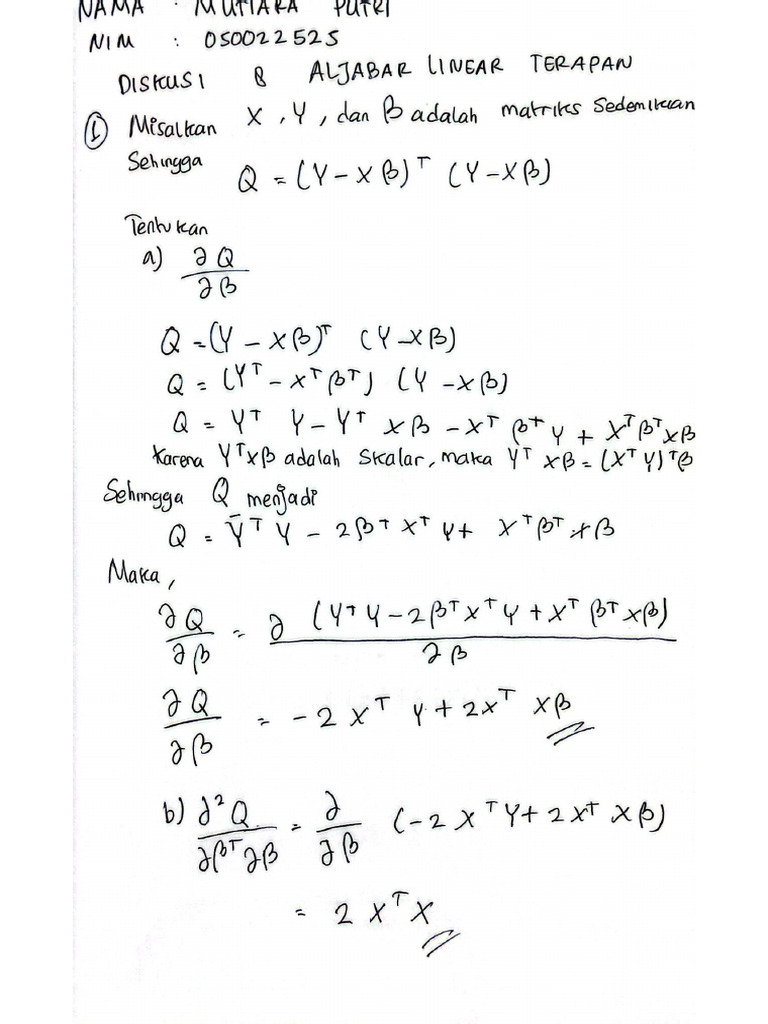 NAMA : MUTIARA PUTRI
NIM : 050022525
DISKUSI 8 ALJABAR LINEAR TERAPAN
① Misalkan X, Y, dan β adalah matriks sedemikian
Sehingga Q = (Y - Xβ)ᵀ (Y - Xβ)
Tentukan
a) ∂Q / ∂β
Q = (Y - Xβ)ᵀ (Y - Xβ)
Q = (Yᵀ - Xᵀβᵀ) (Y - Xβ)
Q = Yᵀ Y - Yᵀ Xβ - Xᵀ βᵀ Y + Xᵀβᵀ Xβ
Karena YᵀXβ adalah skalar, maka Yᵀ Xβ = (Xᵀ Y)ᵀβ
Sehingga Q menjadi
Q = Yᵀ Y - 2βᵀ Xᵀ Y + Xᵀβᵀ Xβ
Maka,
∂Q / ∂β = ∂ (Yᵀ Y - 2βᵀ Xᵀ Y + Xᵀ βᵀ Xβ) / ∂β
∂Q / ∂β = -2 Xᵀ Y + 2Xᵀ Xβ
b) ∂²Q / ∂βᵀ ∂β = ∂ / ∂β (-2 Xᵀ Y + 2 Xᵀ Xβ)
= 2 Xᵀ X